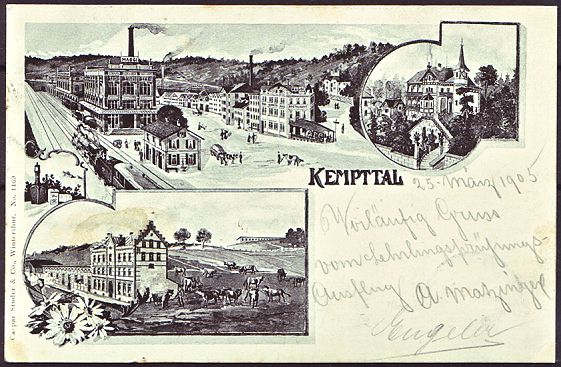 MAGGI
KEMPTTAL
25. März 1905
Vorläufig Gruss
vom Lehrlingsprüfungs
Ausflug A. Matzinger
Engeler
Caspar Studer & Co., Winterthur. No. 1453